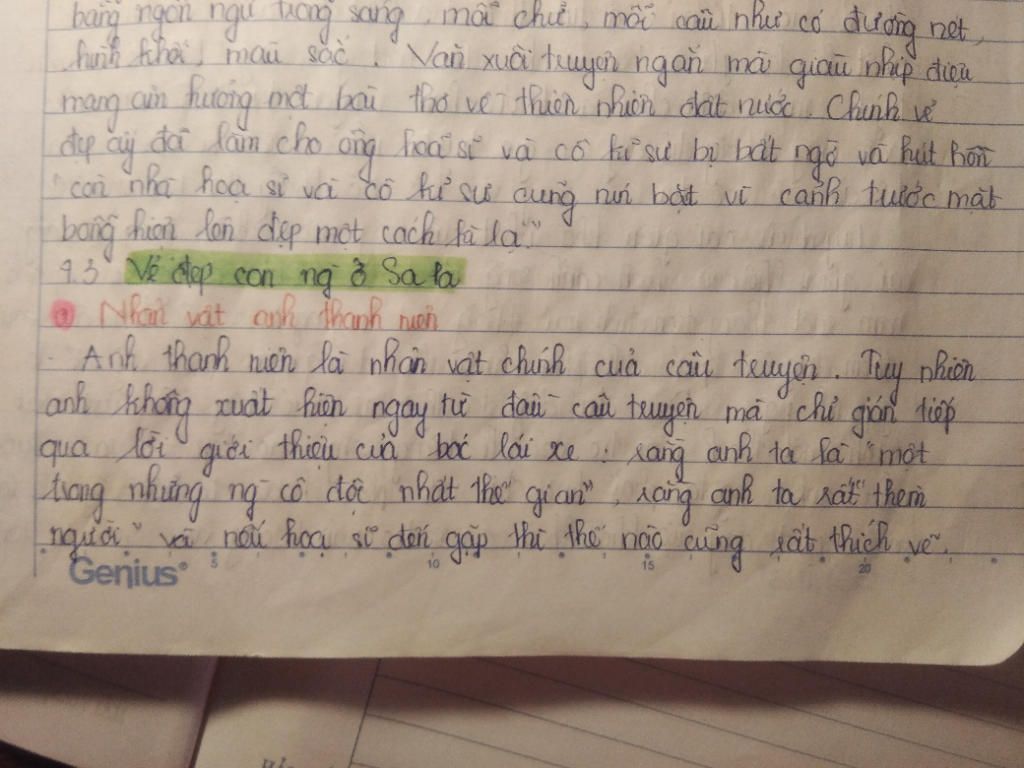 bằng ngôn ngữ trong sáng, mỗi chữ, mỗi câu như có đường nét,
hình khối, màu sắc. Văn xuôi truyện ngắn mà giàu nhịp điệu
mang âm hưởng một bài thơ về thiên nhiên đất nước. Chính vẻ
đẹp ấy đã làm cho ông hoạ sĩ và cô kĩ sư bị bất ngờ và hút hồn
"còn nhà hoạ sĩ và cô kĩ sư cũng nín bặt vì cảnh trước mặt
bỗng hiện lên đẹp một cách kì lạ"
4.3 Vẻ đẹp con ng ở Sa Pa
a Nhân vật anh thanh niên
Anh thanh niên là nhân vật chính của câu truyện. Tuy nhiên
anh không xuất hiện ngay từ đầu câu truyện mà chỉ gián tiếp
qua lời giới thiệu của bác lái xe: rằng anh ta là "một
trong những ng cô độc nhất thế gian", rằng anh ta rất "thèm
người" và nếu hoạ sĩ đến gặp thì thế nào cũng rất thích vẽ.
Genius
5 10 15 20